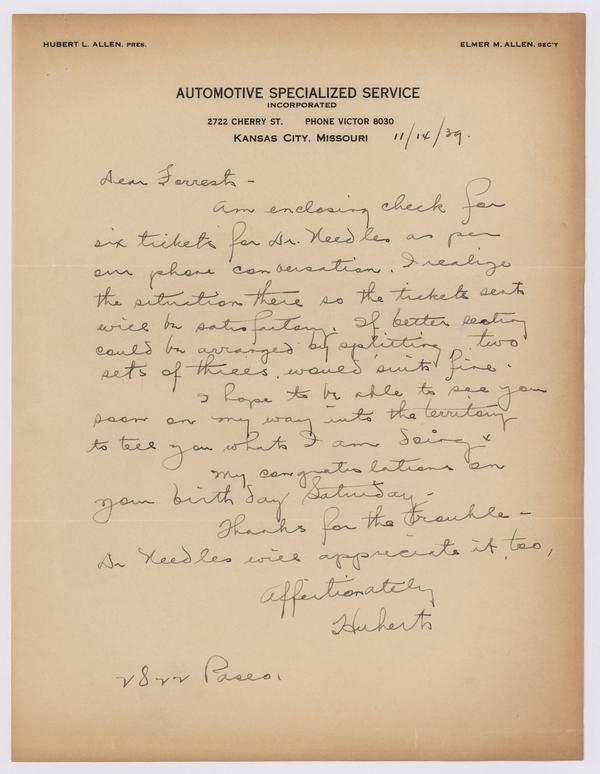 HUBERT L. ALLEN, PRES.
ELMER M. ALLEN, SEC'Y
AUTOMOTIVE SPECIALIZED SERVICE
INCORPORATED
2722 CHERRY ST. PHONE VICTOR 8030
KANSAS CITY, MISSOURI 11/14/39.
Dear Forrest -
Am enclosing check for
six tickets for Dr. Needles as per
our phone conversation. I realize
the situation there so the tickets sent
will be satisfactory. If better seating
could be arranged by splitting, two
sets of threes, would suit fine.
I hope to be able to see you
soon on my way into the territory
to tell you whats I am doing
My congratulations on
your birthday Saturday -
Thanks for the trouble -
Dr Needles will appreciate it too,
Affectionately
Hubert
2822 Paseo.